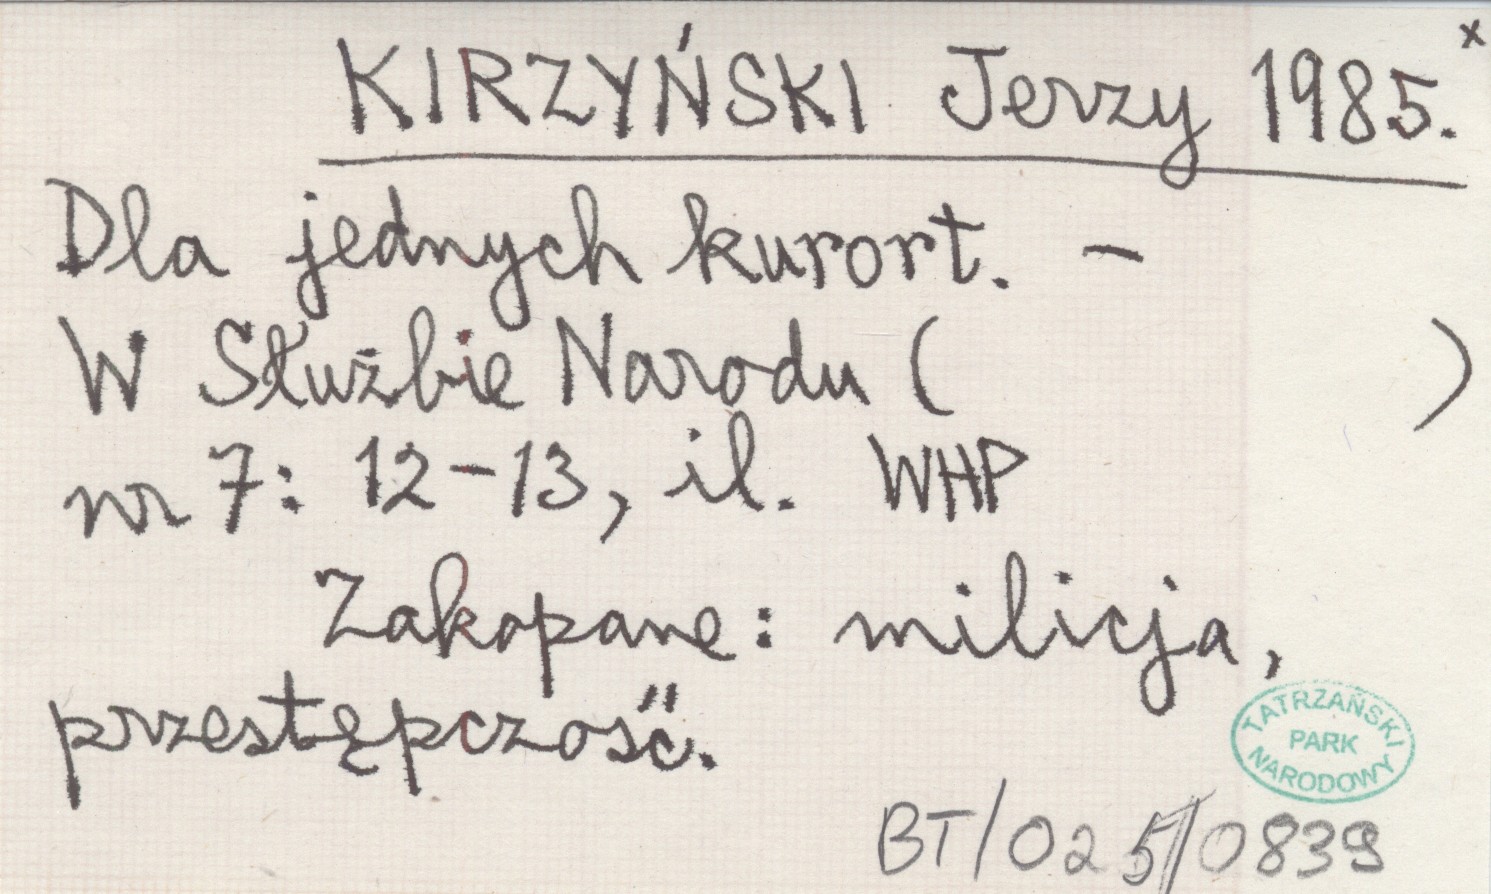 x
KIRZYŃSKI Jerzy 1985.
Dla jednych kurort. –
W Służbie Narodu ( )
nr 7: 12–13, il. WHP
Zakopane: milicja,
przestępczość.
TATRZAŃSKI
PARK
NARODOWY
BT/025/0839